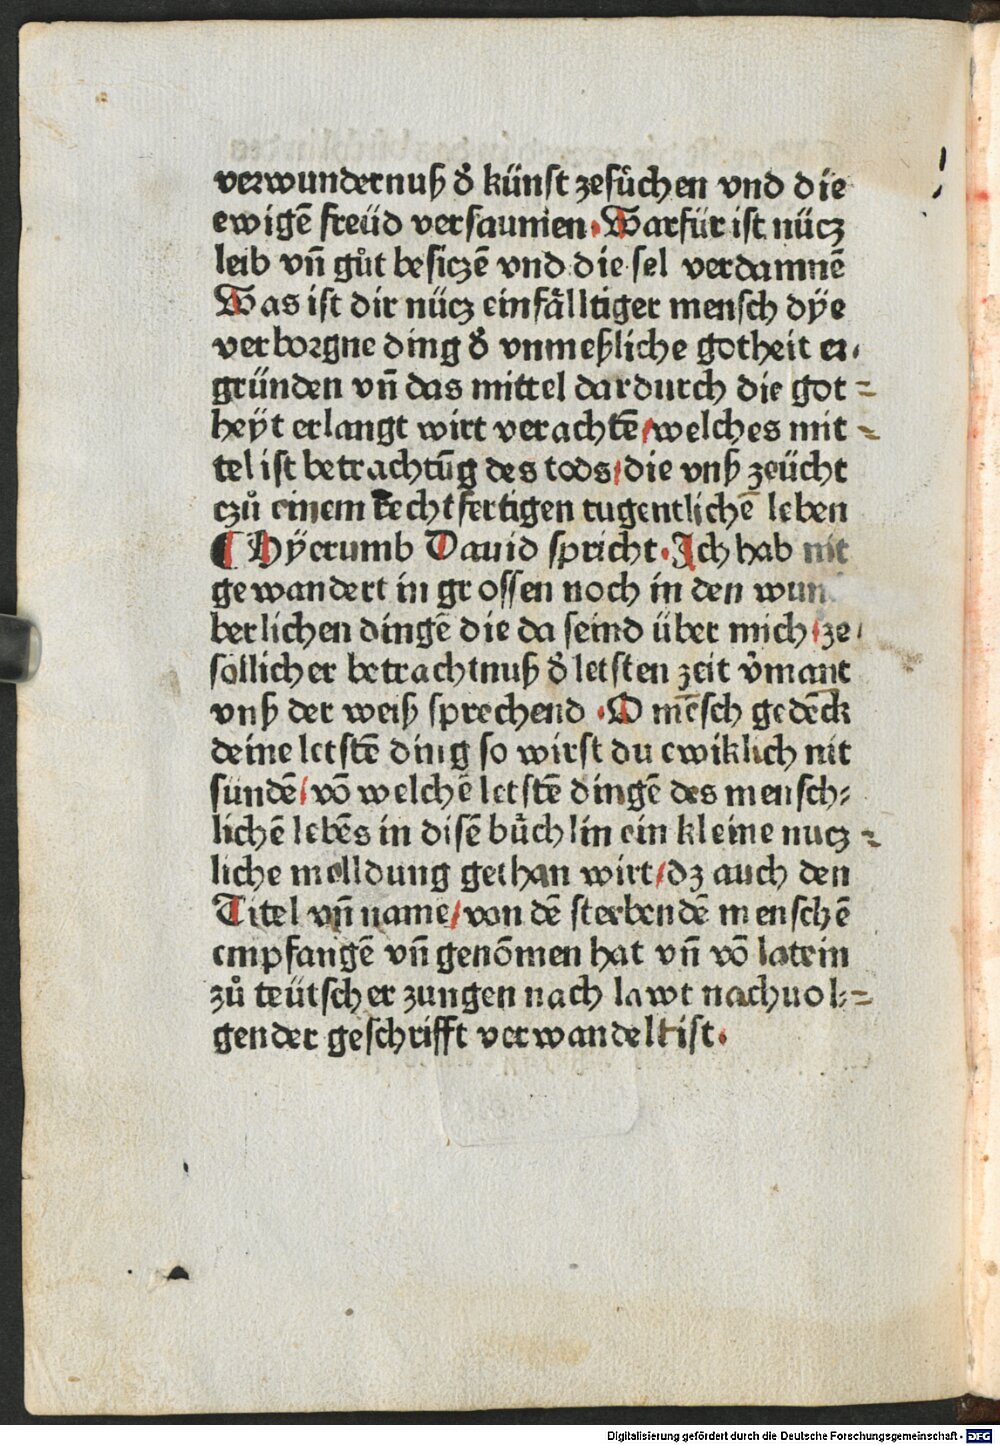 verwundernuß dˀ künst zesůchen vnd die
ewigē freüd versaumen·Warfür ist nücz
leib vn̄ gůt besiczē vnd die sel verdamnē
Was ist dir nücz einfälltiger mensch dÿe
verborgne ding dˀ vnmeßliche gotheit er-
gründen vn̄ das mittel dardurch die got=
heÿt erlangt wirt verachtē/welches mit=
tel ist betrachtūg des tods/die vnß zeücht
czů einem rechtfertigen tugentlichē leben
¶ Hÿerumb Dauid spricht·Ich hab nit
gewandert in grossen noch in den wun
berlichen dingē die da seind über mich/ze
söllicher betrachtnuß dˀ letsten zeit vˀmant
vnß der weiß sprechend ·O mēsch gedēck
deine letstē ding so wirst du ewiklich nit
sünden̄/vō welchē letstē dingē des mensch-
lichē lebēs in disē bůchlin ein kleine nucz=
liche melldung gethan wirt/dz auch den
Titel vn̄ name/von dē sterbendē menschē
empfangē vn̄ genōmen hat vn̄ vō latein
zů teütscher zungen nach lawt nachuol=
gender geschrifft verwandelt ist·
Digitalisierung gefördert durch die Deutsche Forschungsgemeinschaft - DFG